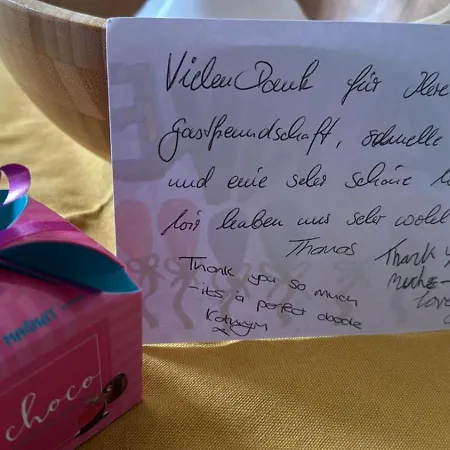 Vielen Dank für Ihre
Gastfreundschaft, schnelle
und eine sehr schöne
Wir haben uns sehr wohl
Thomas
Thank you so much
- it's a perfect abode
Kathryn
Thank
much -
Love
MAGNAT
choco